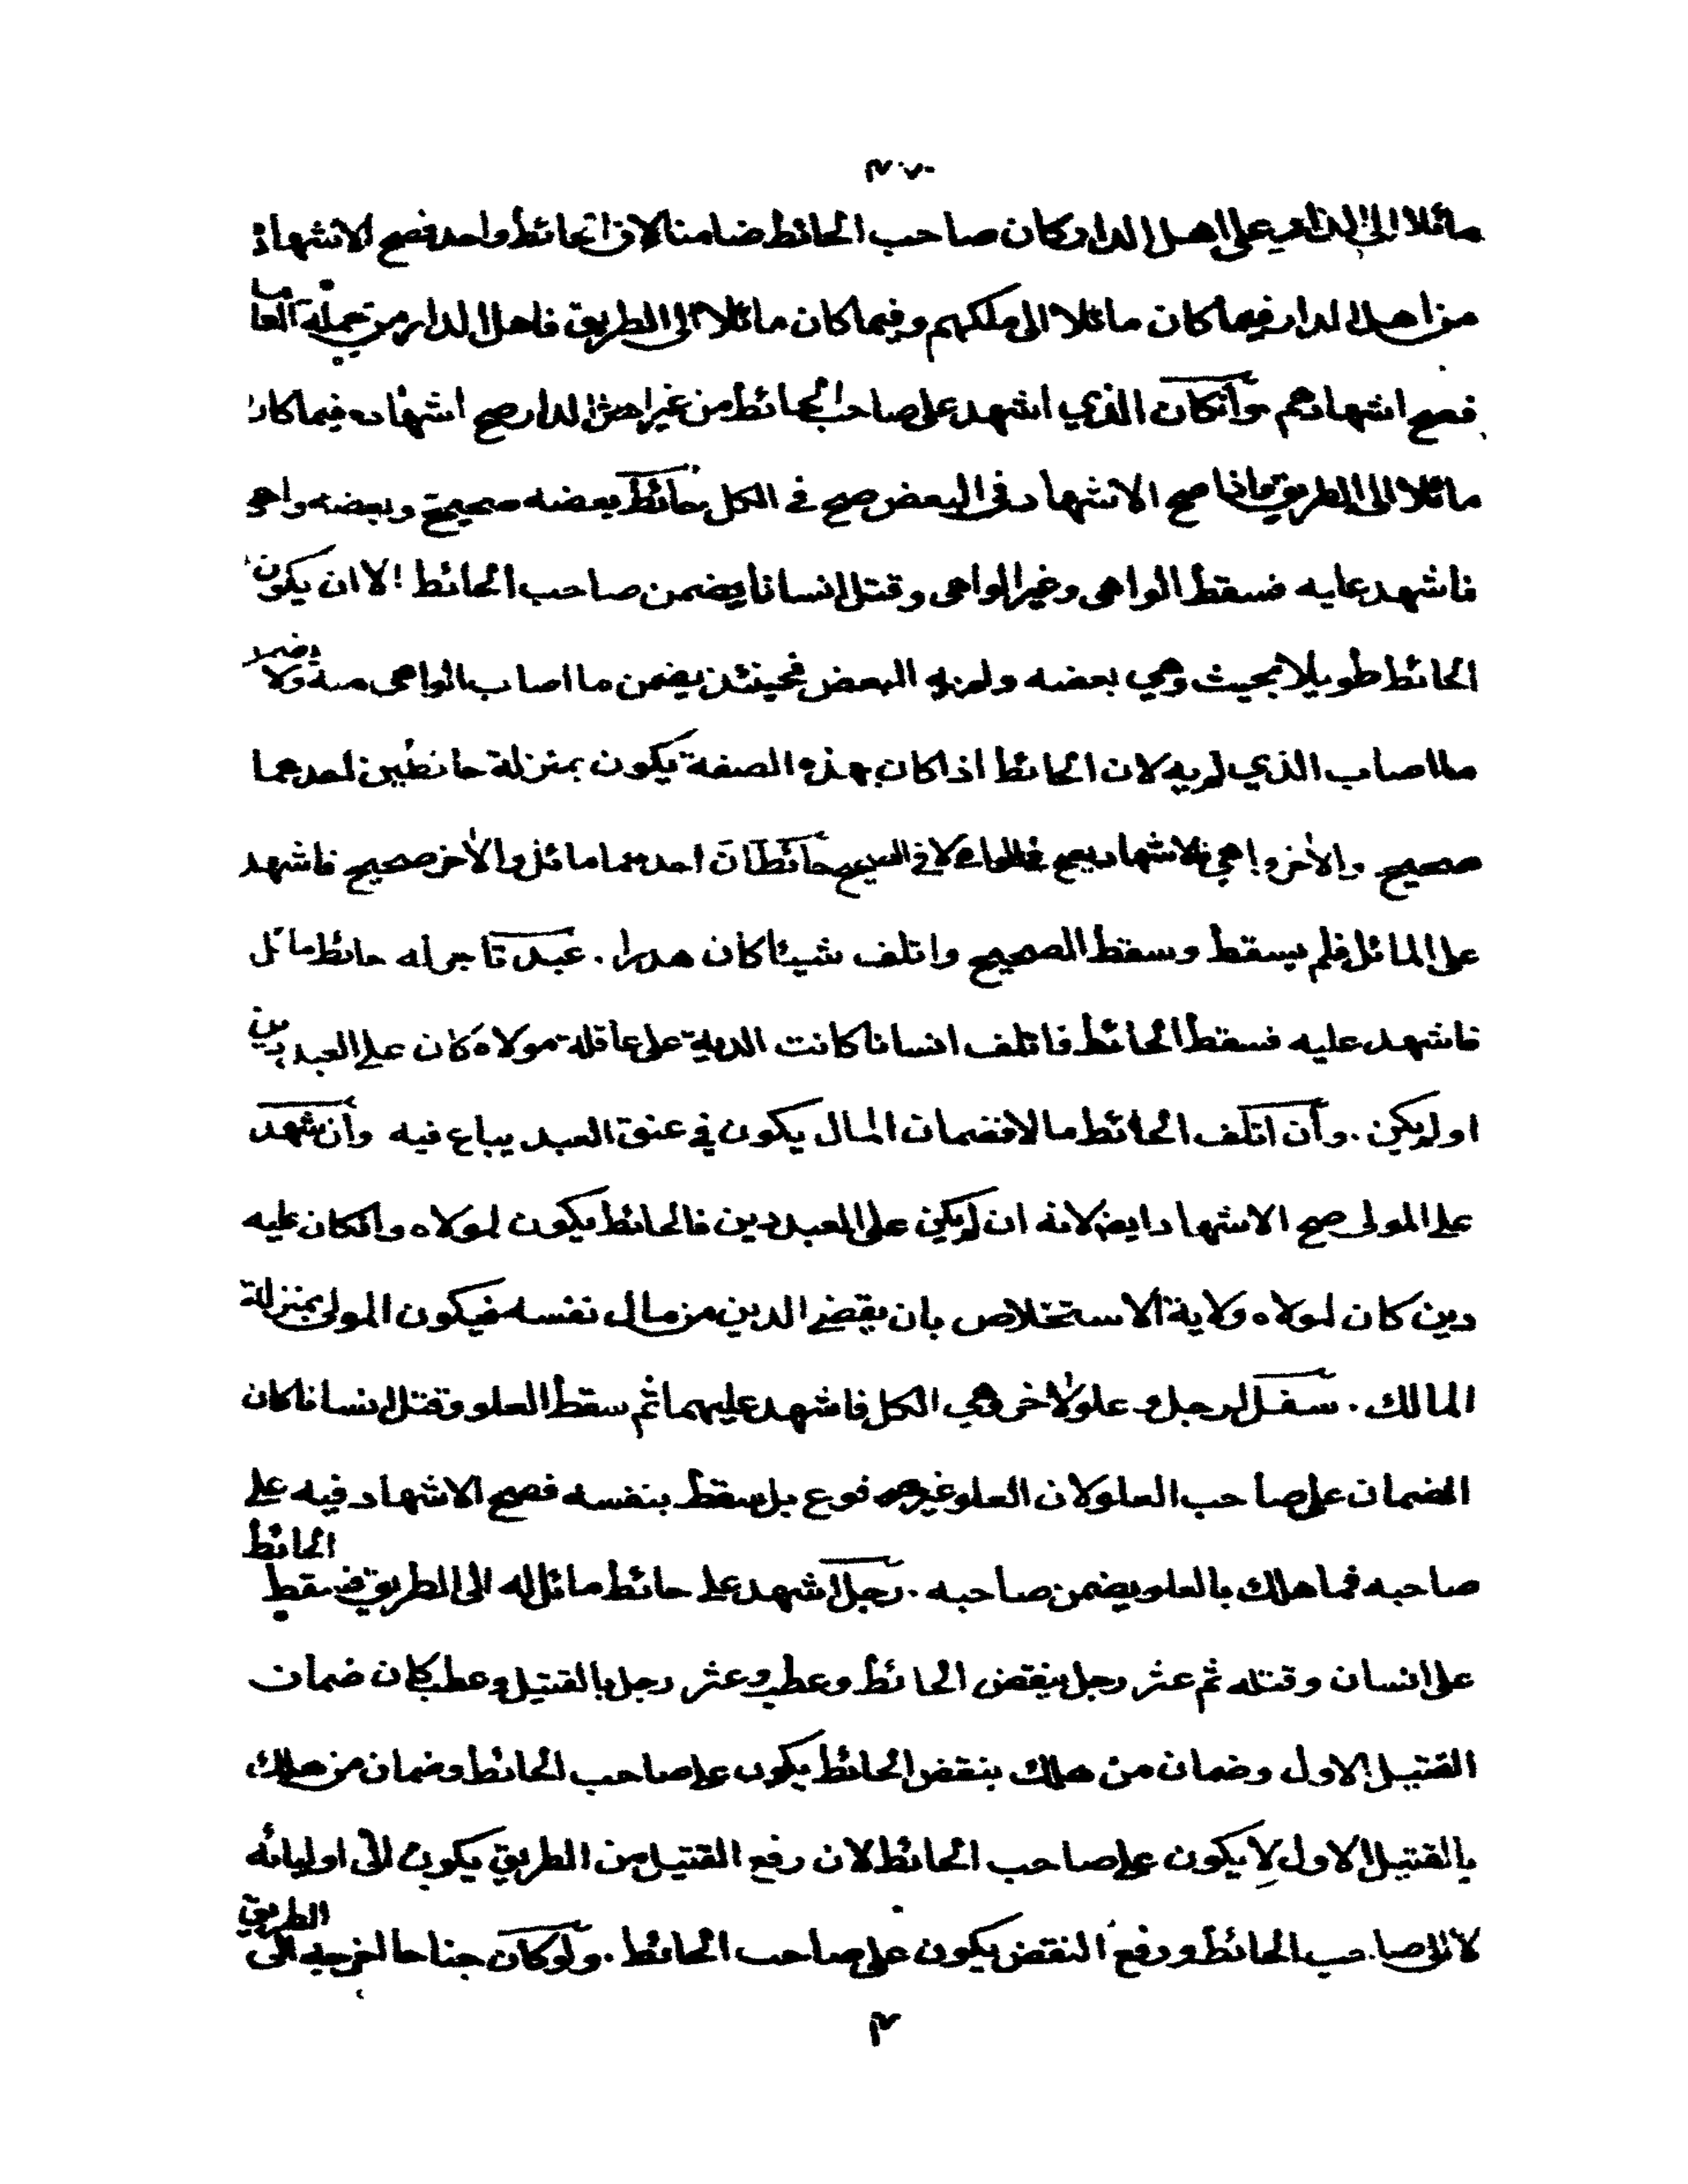 مائلا الى الدار على اهل الدار كان صاحب الحائط ضامنا لان الحائط واحد فصح الاشهاد
من اهل الدار فيما كان مائلا الى ملكهم وفيما كان مائلا الى الطريق فاهل الدار من جملة العامة
فصح اشهادهم وان كان الذي اشهد على صاحب الحائط من غير اهل الدار صح اشهاده فيما كان
مائلا الى الطريق واذا صح الاشهاد في البعض صح في الكل حائط بعضه صحيح وبعضه واهى
فاشهد عليه فسقط الواهى وغير الواهى وقتل انسانا يضمن صاحب الحائط الا ان يكون
الحائط طويلا بحيث وهي بعضه ولم يه البعض فحينئذ يضمن ما اصاب الواهى منه ولا يضمن
ما اصاب الذي لم يه لان الحائط اذا كان بهذه الصفة يكون بمنزلة حائطين احدهما
صحيح والاخر واهي فالاشهاد يصح في الواهى لا في الصحيح حائطان احدهما مائل والاخر صحيح فاشهد
على المائل فلم يسقط وسقط الصحيح واتلف شيئا كان هدرا. عبد تاجر له حائط مائل
فاشهد عليه فسقط الحائط فاتلف انسانا كانت الدية على عاقلة مولاه كان على العبد دين
او لم يكن. وان اتلف الحائط مالا فضمان المال يكون في عنق العبد يباع فيه وان شهد
على المولى صح الاشهاد ايضا لانه ان لم يكن على العبد دين فالحائط يكون لمولاه وان كان عليه
دين كان لمولاه ولاية الاستخلاص بان يقضى الدين من مال نفسه فيكون المولى بمنزلة
المالك. سفل لرجل وعلو لاخر وهي الكل فاشهد عليهما ثم سقط العلو وقتل انسانا كان
الضمان على صاحب العلو لان العلو غير مدفوع بل سقط بنفسه فصح الاشهاد فيه على
صاحبه فما هلك بالعلو يضمن صاحبه. رجل اشهد على حائط مائل له الى الطريق فسقط الحائط
على انسان وقتله ثم عثر رجل بنقض الحائط وعطب وعثر رجل بالقتيل وعطب كان ضمان
القتيل الاول وضمان من هلك بنقض الحائط يكون على صاحب الحائط وضمان من هلك
بالقتيل الاول لا يكون على صاحب الحائط لان رفع القتيل من الطريق يكون الى اوليائه
لا الى صاحب الحائط ورفع النقض يكون على صاحب الحائط. ولو كان جناحا اخرجه الى الطريق